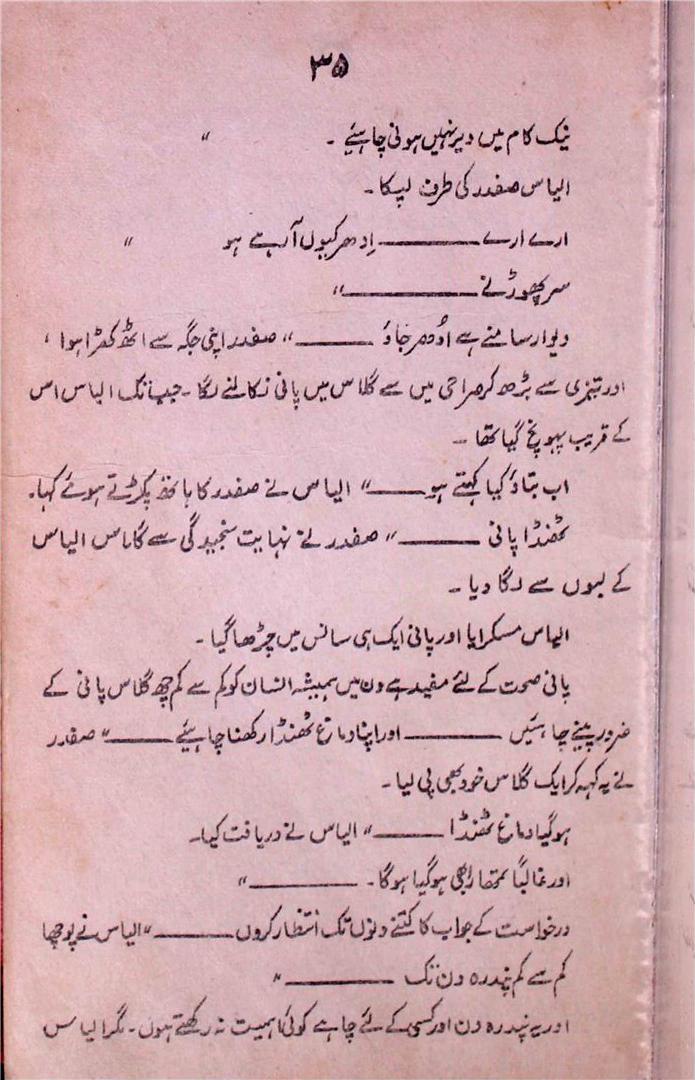 ۳۵
نیک کام میں دیر نہیں ہونی چاہیئے ۔ "
الیاس صفدر کی طرف لپکا ۔
ارے ارے ——— اِدھر کیوں آ رہے ہو "
سر پھوڑنے ——— "
دیوار سامنے ہے اُدھر جاؤ ——— " صفدر اپنی جگہ سے اٹھ کھڑا ہوا ،
اور تیزی سے بڑھ کر صراحی میں سے گلاس میں پانی نکالنے لگا ۔ جب تک الیاس اس
کے قریب پہونچ گیا تھا ۔
اب بتاؤ کیا کہتے ہو ——— " الیاس نے صفدر کا ہاتھ پکڑتے ہوئے کہا ۔
ٹھنڈا پانی ——— " صفدر نے نہایت سنجیدگی سے گلاس الیاس
کے لبوں سے لگا دیا ۔
الیاس مسکرایا اور پانی ایک ہی سانس میں چڑھا گیا ۔
پانی صحت کے لئے مفید ہے دن میں ہمیشہ انسان کو کم سے کم چھ گلاس پانی کے
ضرور پینے چاہئیں ——— اور اپنا دماغ ٹھنڈا رکھنا چاہیئے ——— " صفدر
نے یہ کہہ کر ایک گلاس خود بھی پی لیا ۔
ہو گیا دماغ ٹھنڈا ——— " الیاس نے دریافت کیا ۔
اور غالباً تمھارا بھی ہو گیا ہو گا ۔ ——— "
درخواست کے جواب کا کتنے دنوں تک انتظار کروں ——— " الیاس نے پوچھا
کم سے کم پندرہ دن تک ——— "
اور یہ پندرہ دن اور کسی کے لئے چاہے کوئی اہمیت نہ رکھتے ہوں ۔ مگر الیاس